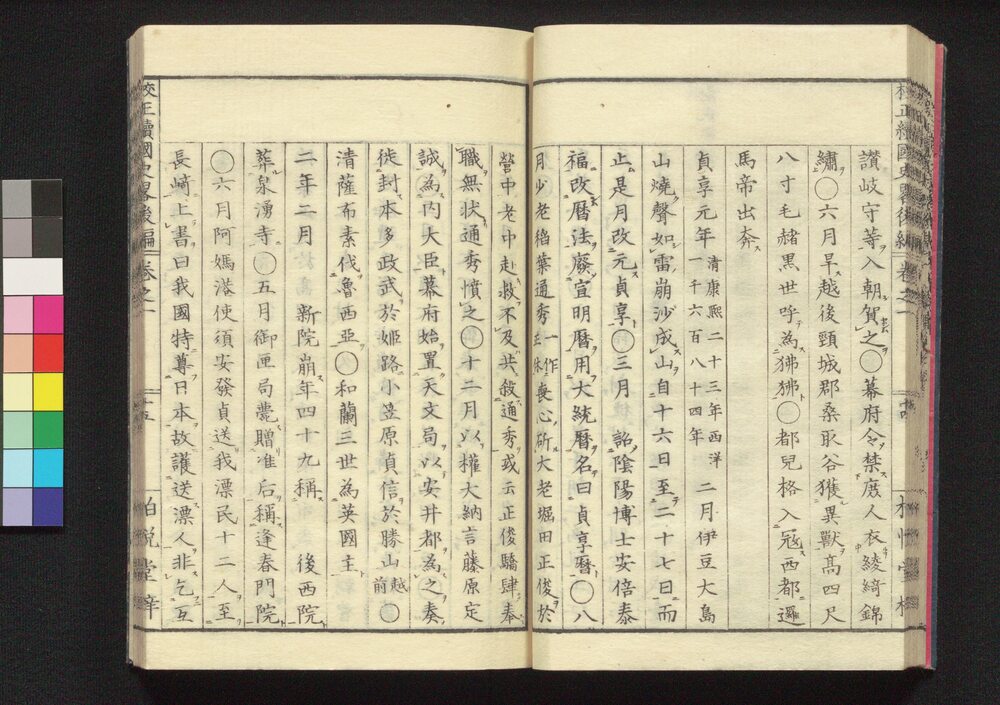 讃岐守等入朝賀之○幕府令禁庶人衣綾綺錦
繡○六月旱越後頸城郡桑取谷獲異獸高四尺
八寸毛赭黒世呼為狒狒○都兒格入冦西都邏
馬帝出奔
貞享元年清康熙二十三年西洋一千六百八十四年二月伊豆大島
山燒聲如雷崩沙成山自十六日至二十七日而
止是月改元貞享○三月詔陰陽博士安倍泰
福改曆法廢宣明曆用大統曆名曰貞享曆○八
月少老稻葉通秀一作正休喪心斫大老堀田正俊於
營中老中赴救不及共殺通秀或云正俊驕肆奉
職無狀通秀憤之○十二月以權大納言藤原定
誠為内大臣幕府始置天文局以安井都為之奏
徙封本多政武於姫路小笠原貞信於勝山越前○
清薩布素伐魯西亞○和蘭三世為英國主
二年二月新院崩年四十九稱後西院
葬泉湧寺○五月御匣局薨贈准后稱逢春門院
○六月阿媽港使須安發貞送我漂民十二人至
長崎上書曰我國特尊日本故護送漂人非乞互
校正續國史畧後編 卷之一
十五
柏悅堂梓